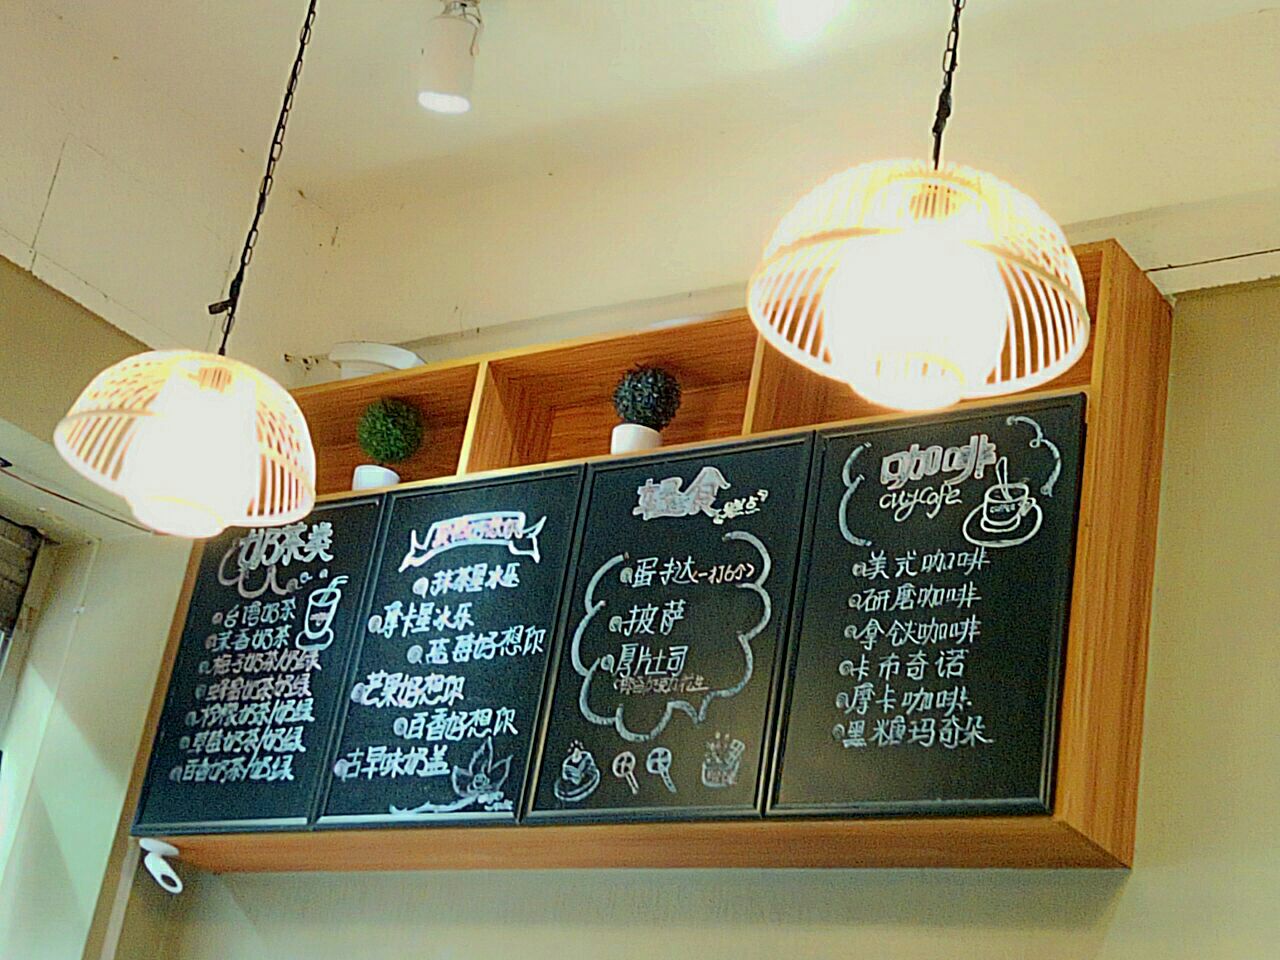 奶茶类
台湾奶茶
茉香奶茶
柚子奶茶/奶绿
蜂蜜奶茶/奶绿
柠檬奶茶/奶绿
草莓奶茶/奶绿
百香奶茶/奶绿
抹茶星冰乐
摩卡星冰乐
蓝莓好想你
芒果好想你
百香好想你
古早味奶盖
轻食
蛋挞(一打6个)
披萨
厚片土司
咖啡
cuycafe
美式咖啡
研磨咖啡
拿铁咖啡
卡布奇诺
摩卡咖啡
黑糖玛奇朵